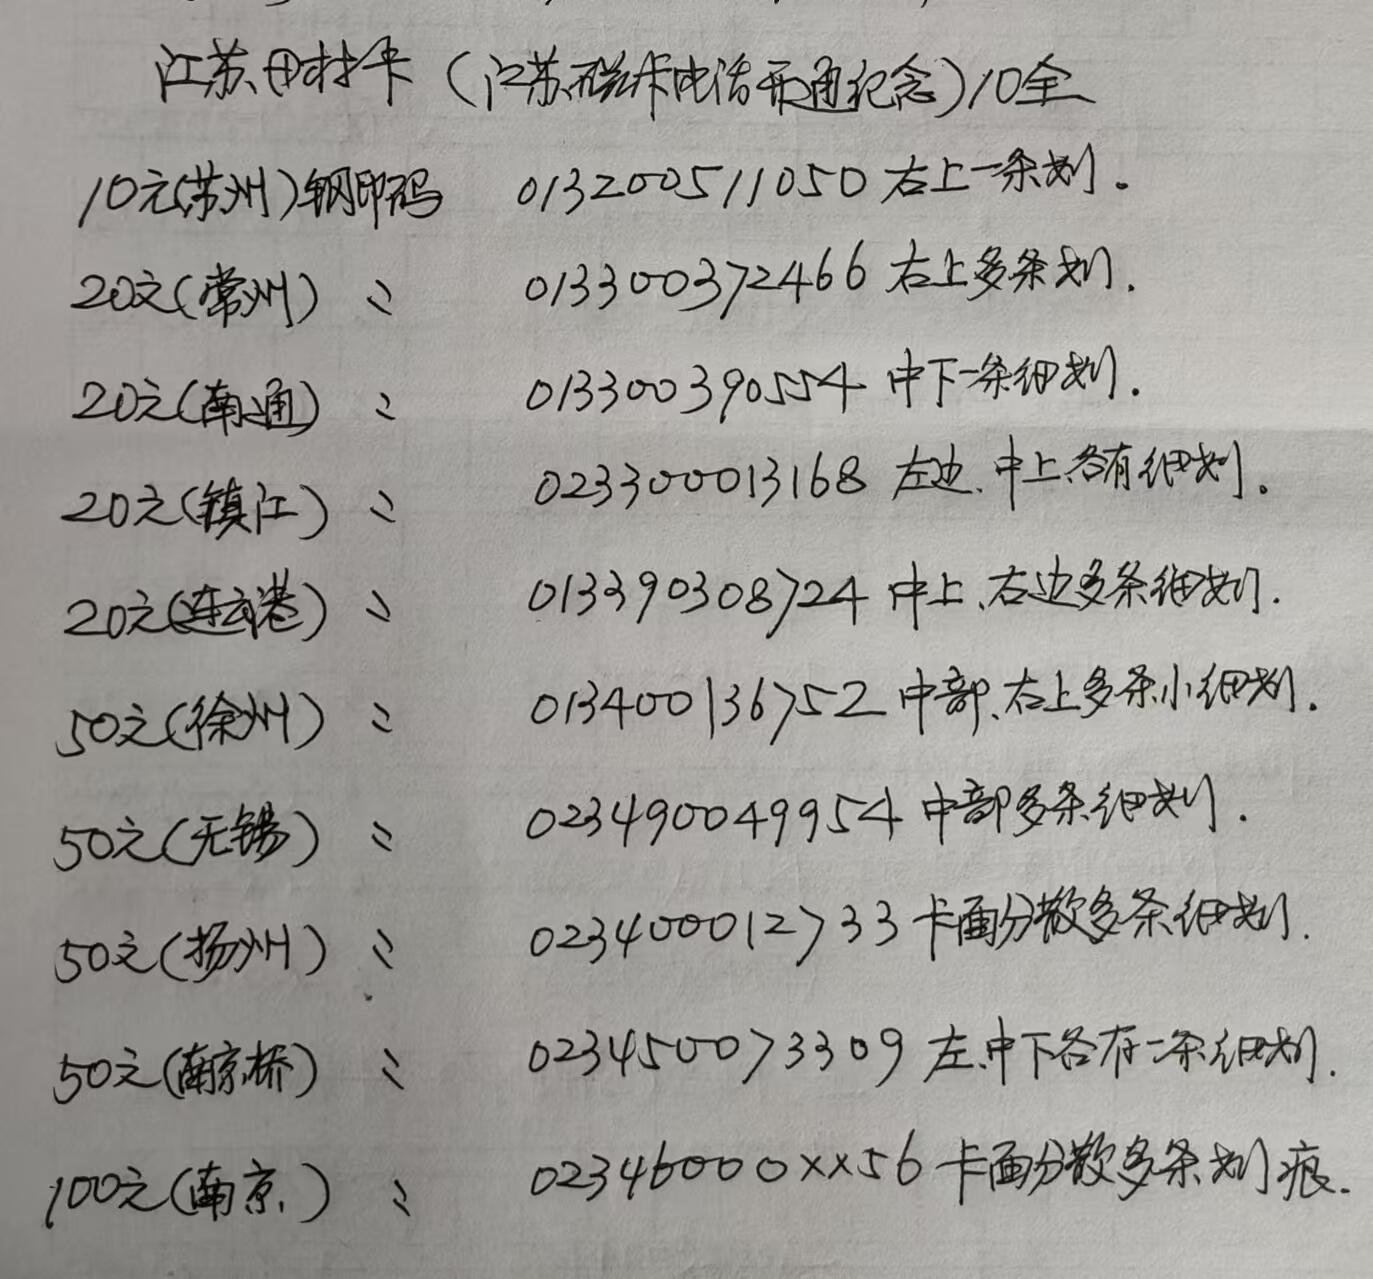 江苏田村卡（江苏磁卡电话开通纪念）10全
10元(苏州)钢印码 013200511050 右上一条划.
20元(常州) 〃 013300372466 右上多条划.
20元(南通) 〃 013300390554 中下一条细划.
20元(镇江) 〃 023300013168 左边、中上各有细划.
20元(连云港) 〃 013390308724 中上、右边多条细划.
50元(徐州) 〃 013400136752 中部、右上多条小细划.
50元(无锡) 〃 023490049954 中部多条细划.
50元(扬州) 〃 023400012733 卡面分散多条细划.
50元(南京桥) 〃 023450073309 左、中下各有一条细划.
100元(南京) 〃 02346000××56 卡面分散多条划痕.